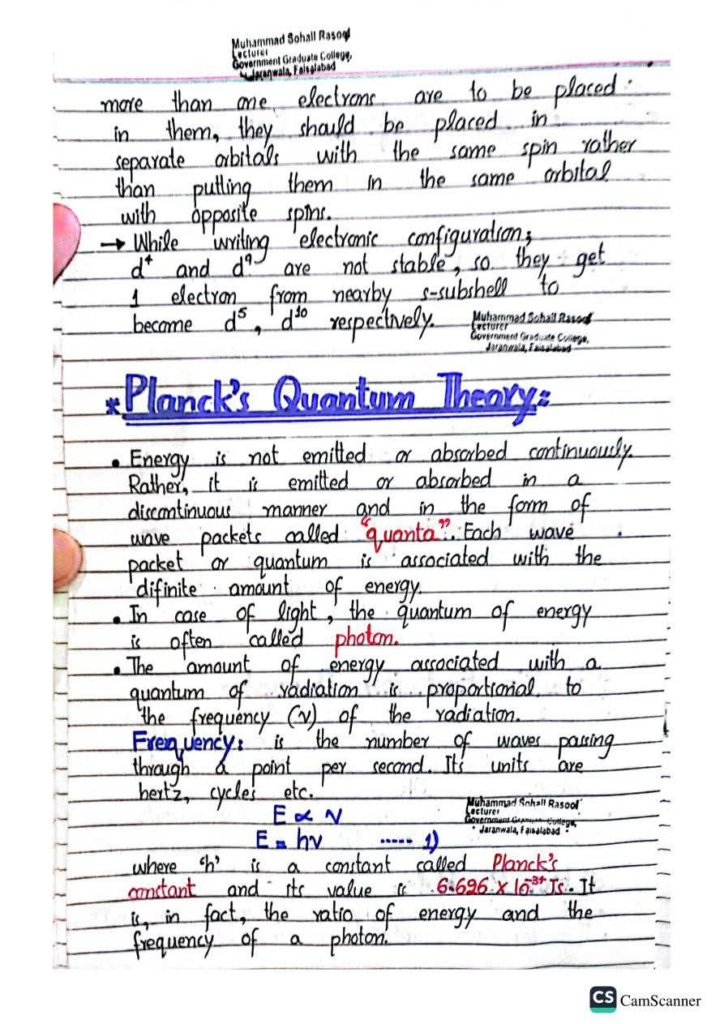 Muhammad Sohail Rasool
Lecturer
Government Graduate College,
Jaranwala, Faisalabad
more than one electrons are to be placed
in them, they should be placed in
separate orbitals with the same spin rather
than putting them in the same orbital
with opposite spins.
→ While writing electronic configuration;
d⁴ and d⁹ are not stable, so they get
1 electron from nearby s-subshell to
become d⁵, d¹⁰ respectively.
Muhammad Sohail Rasool
Lecturer
Government Graduate College,
Jaranwala, Faisalabad
*Planck's Quantum Theory:
• Energy is not emitted or absorbed continuously.
Rather, it is emitted or absorbed in a
discontinuous manner and in the form of
wave packets called "quanta". Each wave
packet or quantum is associated with the
difinite amount of energy.
• In case of light, the quantum of energy
is often called photon.
• The amount of energy associated with a
quantum of radiation is proportional to
the frequency (ν) of the radiation.
Frequency: is the number of waves passing
through a point per second. Its units are
hertz, cycles etc.
E ∝ ν
E = hν ----- 1)
Muhammad Sohail Rasool
Lecturer
Government Graduate College,
Jaranwala, Faisalabad
where 'h' is a constant called Planck's
constant and its value is 6.626 x 10⁻³⁴ Js. It
is, in fact, the ratio of energy and the
frequency of a photon.
CS CamScanner